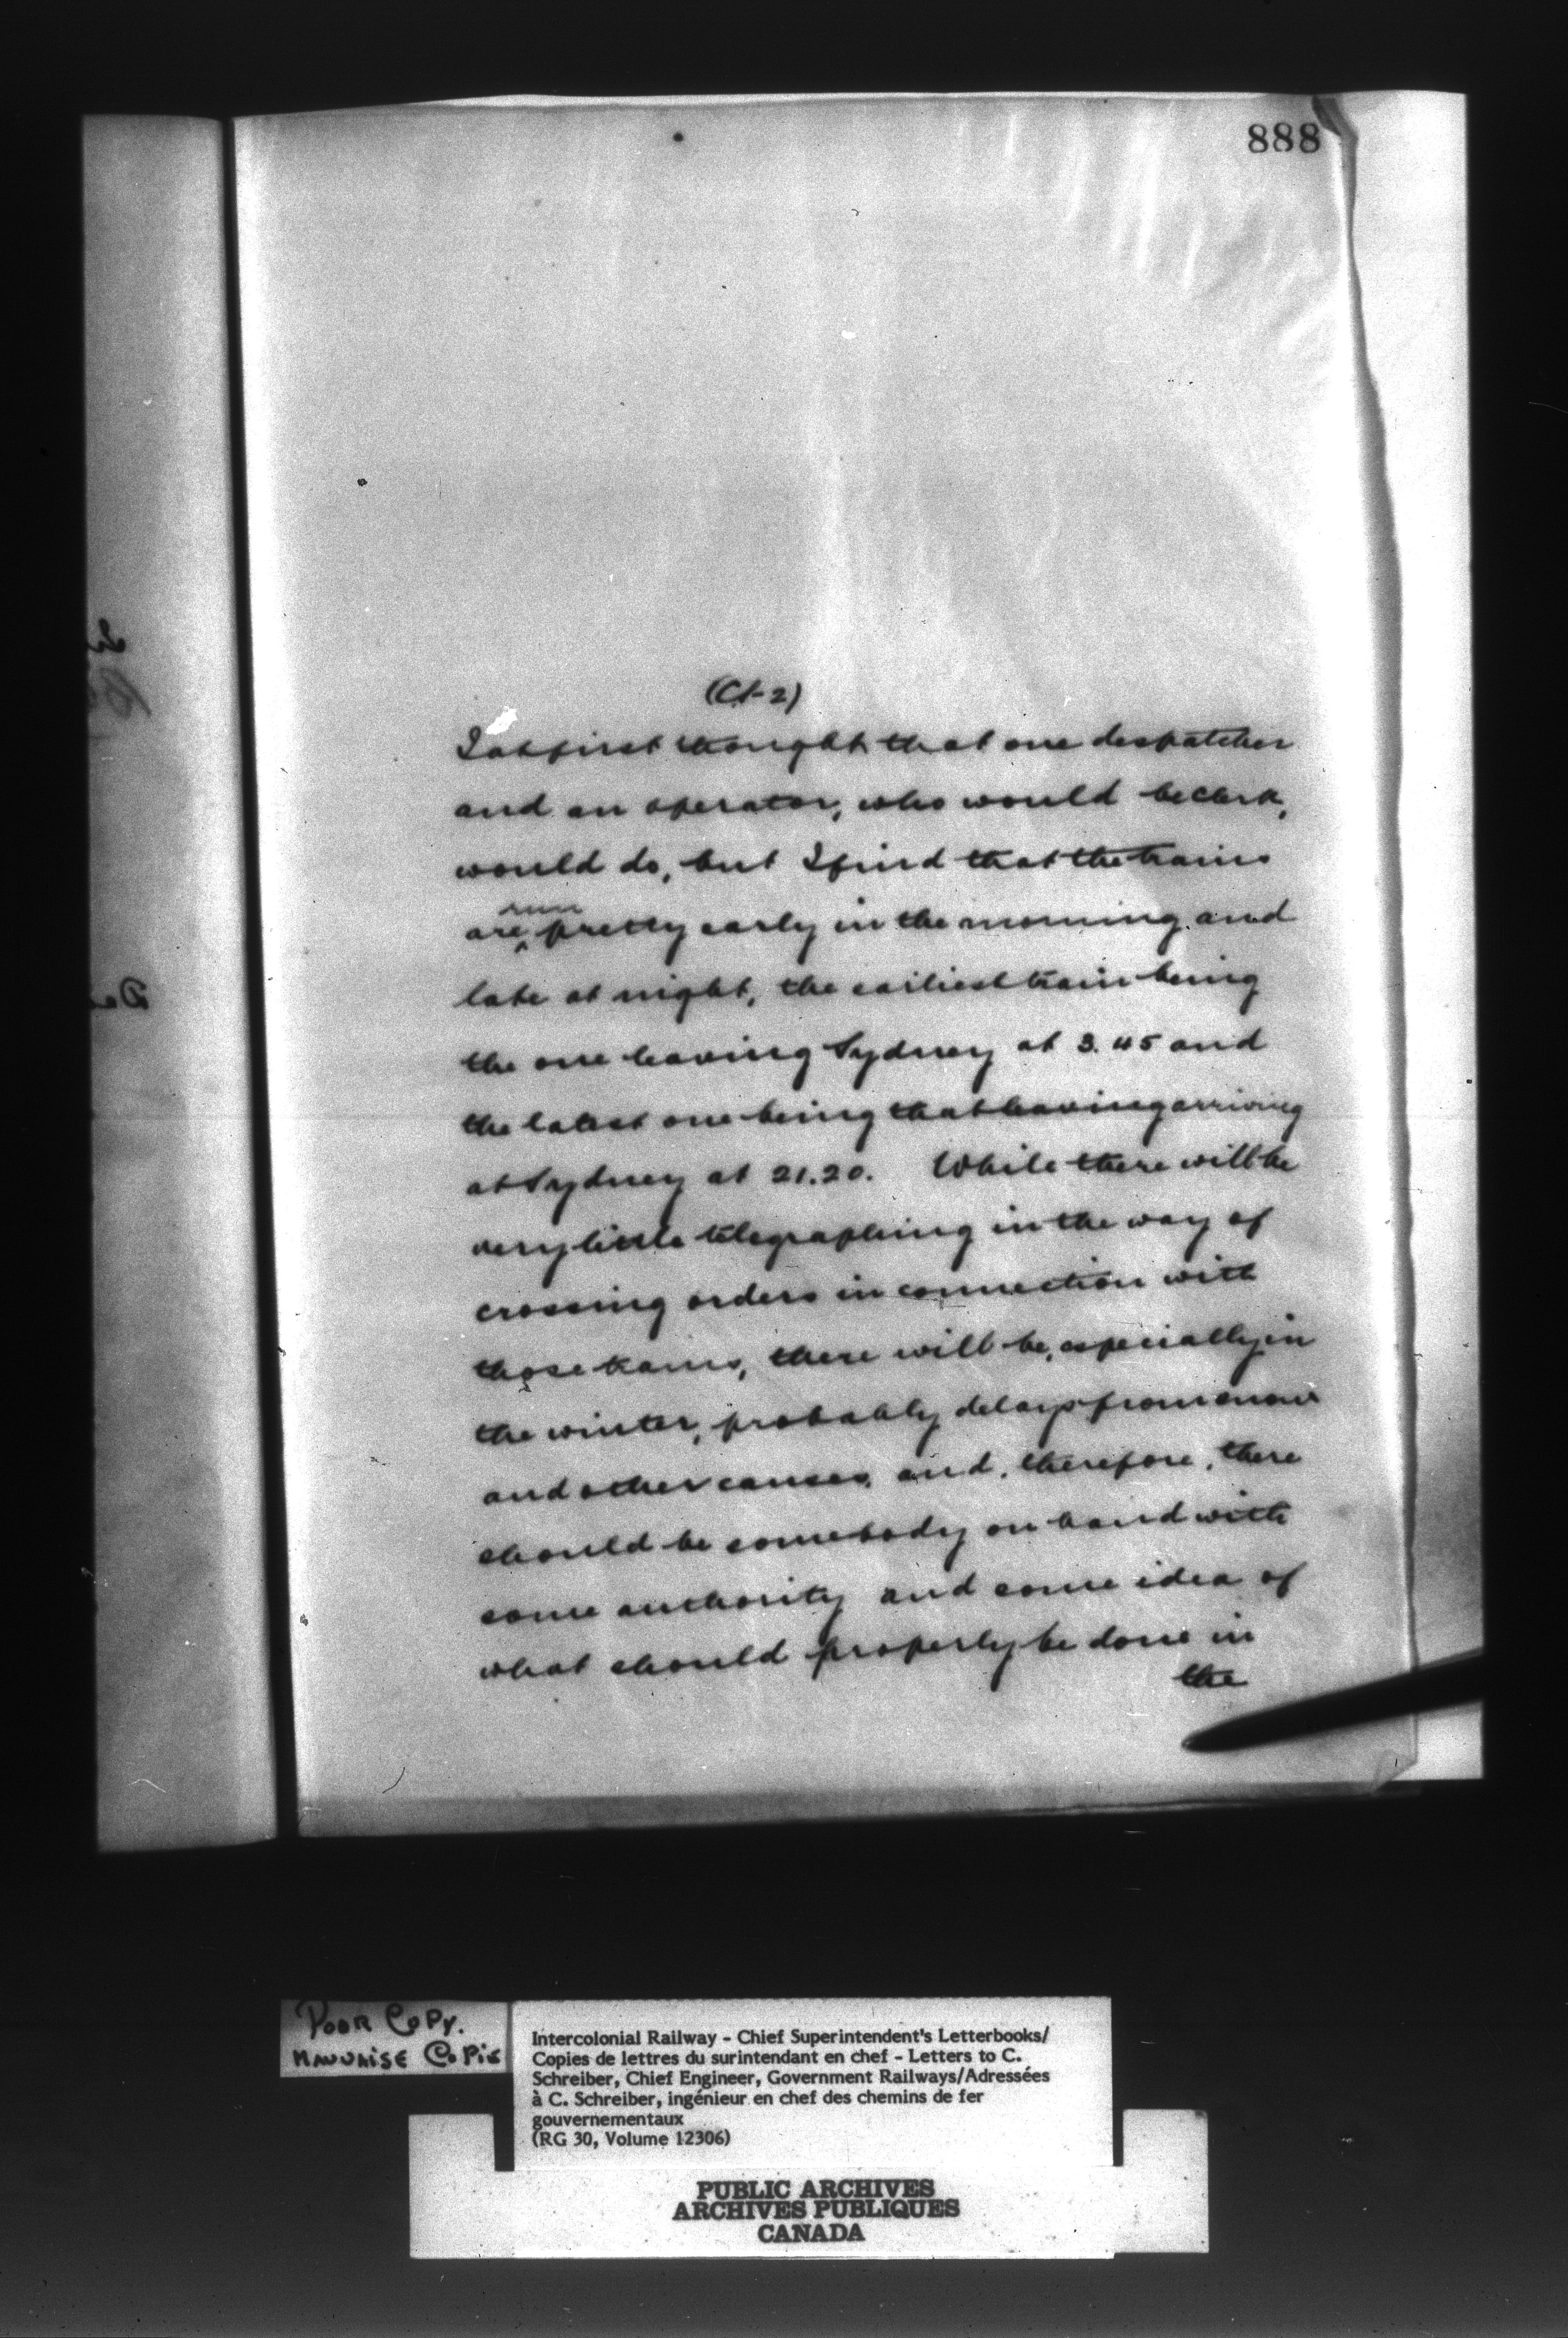 888
(Ct-2)
I at first thought that one despatcher
and an operator, who would be clerk,
would do, but I find that the trains
run
are pretty early in the morning and
late at night, the earliest train being
the one leaving Sydney at 3.45 and
the latest one being that leaving arriving
at Sydney at 21.20. While there will be
very little telegraphing in the way of
crossing orders in connection with
those trains, there will be, especially in
the winter, probably delays from snow
and other causes, and, therefore, there
should be somebody on hand with
some authority and some idea of
what should properly be done in
the
POOR COPY.
MAUVAISE COPIE
Intercolonial Railway - Chief Superintendent's Letterbooks/
Copies de lettres du surintendant en chef - Letters to C.
Schreiber, Chief Engineer, Government Railways/Adressées
à C. Schreiber, ingénieur en chef des chemins de fer
gouvernementaux
(RG 30, Volume 12306)
PUBLIC ARCHIVES
ARCHIVES PUBLIQUES
CANADA